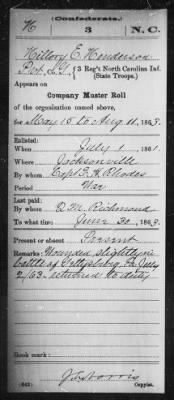 (Confederate.)
H 3 N.C.
Hillory E. Henderson
Pvt, Co. , 3 Reg't North Carolina Inf.
(State Troops.)
Appears on
Company Muster Roll
of the organization named above,
for May 15 to Aug 11, 1863.
Enlisted:
When July 1, 1861.
Where Jacksonville
By whom Capt. E. H. Rhodes
Period War
Last paid:
By whom Q.M. Richmond
To what time June 30, 1863.
Present or absent Present
Remarks: Wounded slightly in
battle of Gettysburg, Pa July
2/63. returned to duty
Book mark:
(642) Copyist.